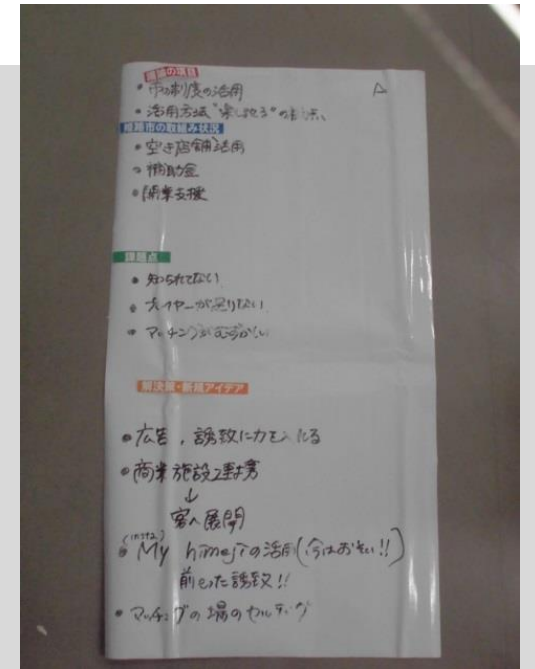 議論の項目
・市の制度の活用
A
・活用方法"楽しめる"の
姫路市の取組み状況
・空き店舗活用
・補助金
・開業支援
課題点
・知られてない
・プレイヤーが足りない
・マッチングがむずかしい
解決策・新規アイデア
・広告, 誘致に力を入れる
・商業施設連携
↓
客へ展開
(insta)
・My himejiの活用(今はおそい!!)
前もった誘致!!
・マッチングの場のセッティング